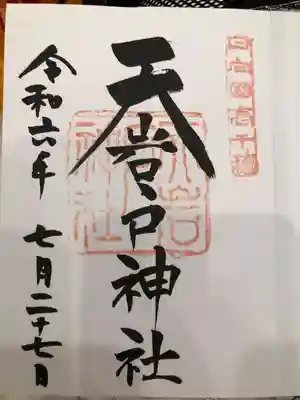 天岩戸神社
令和六年 七月二十七日